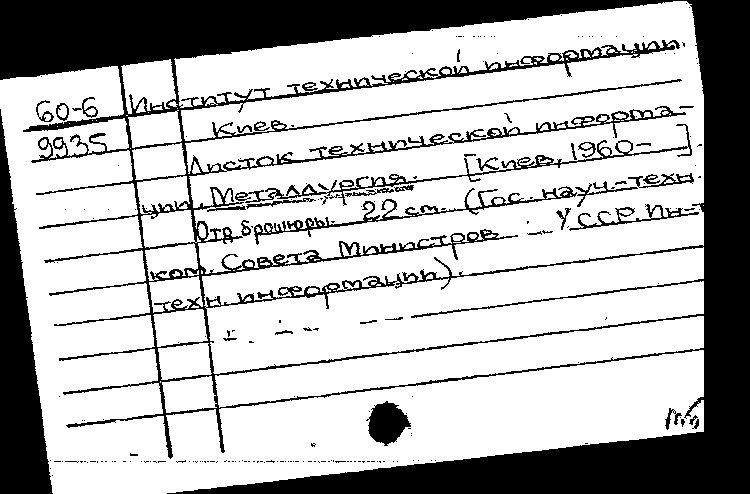 60-6 Институт технической информации.
9935 Киев.
Листок технической информа-
ции. Металлургия. [Киев, 1960- ].
Отд. брошюры. 22 см. (Гос. науч.-техн.
ком. Совета Министров УССР. Ин-т
техн. информации).